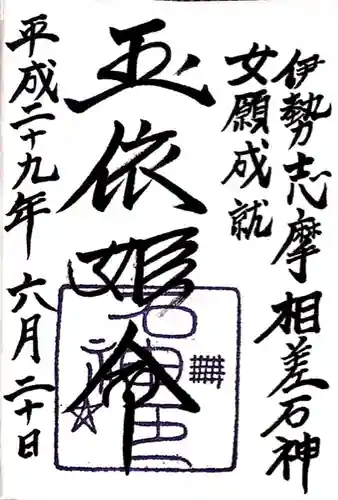 伊勢志摩相差石神
女願成就
玉依姫命
平成二十九年六月二十日
石神